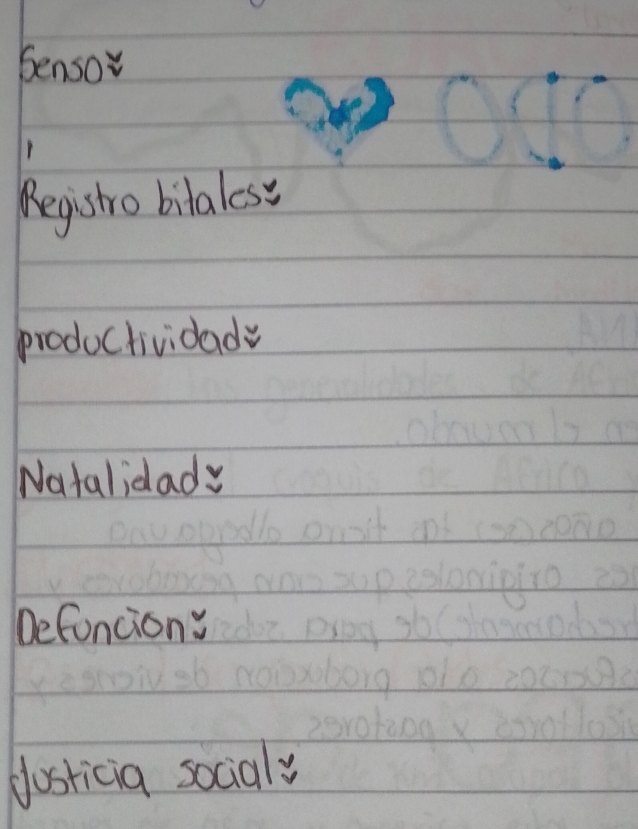 Senso:
Registro bitales:
productividad:
Natalidad:
Defuncion:
Justicia social: